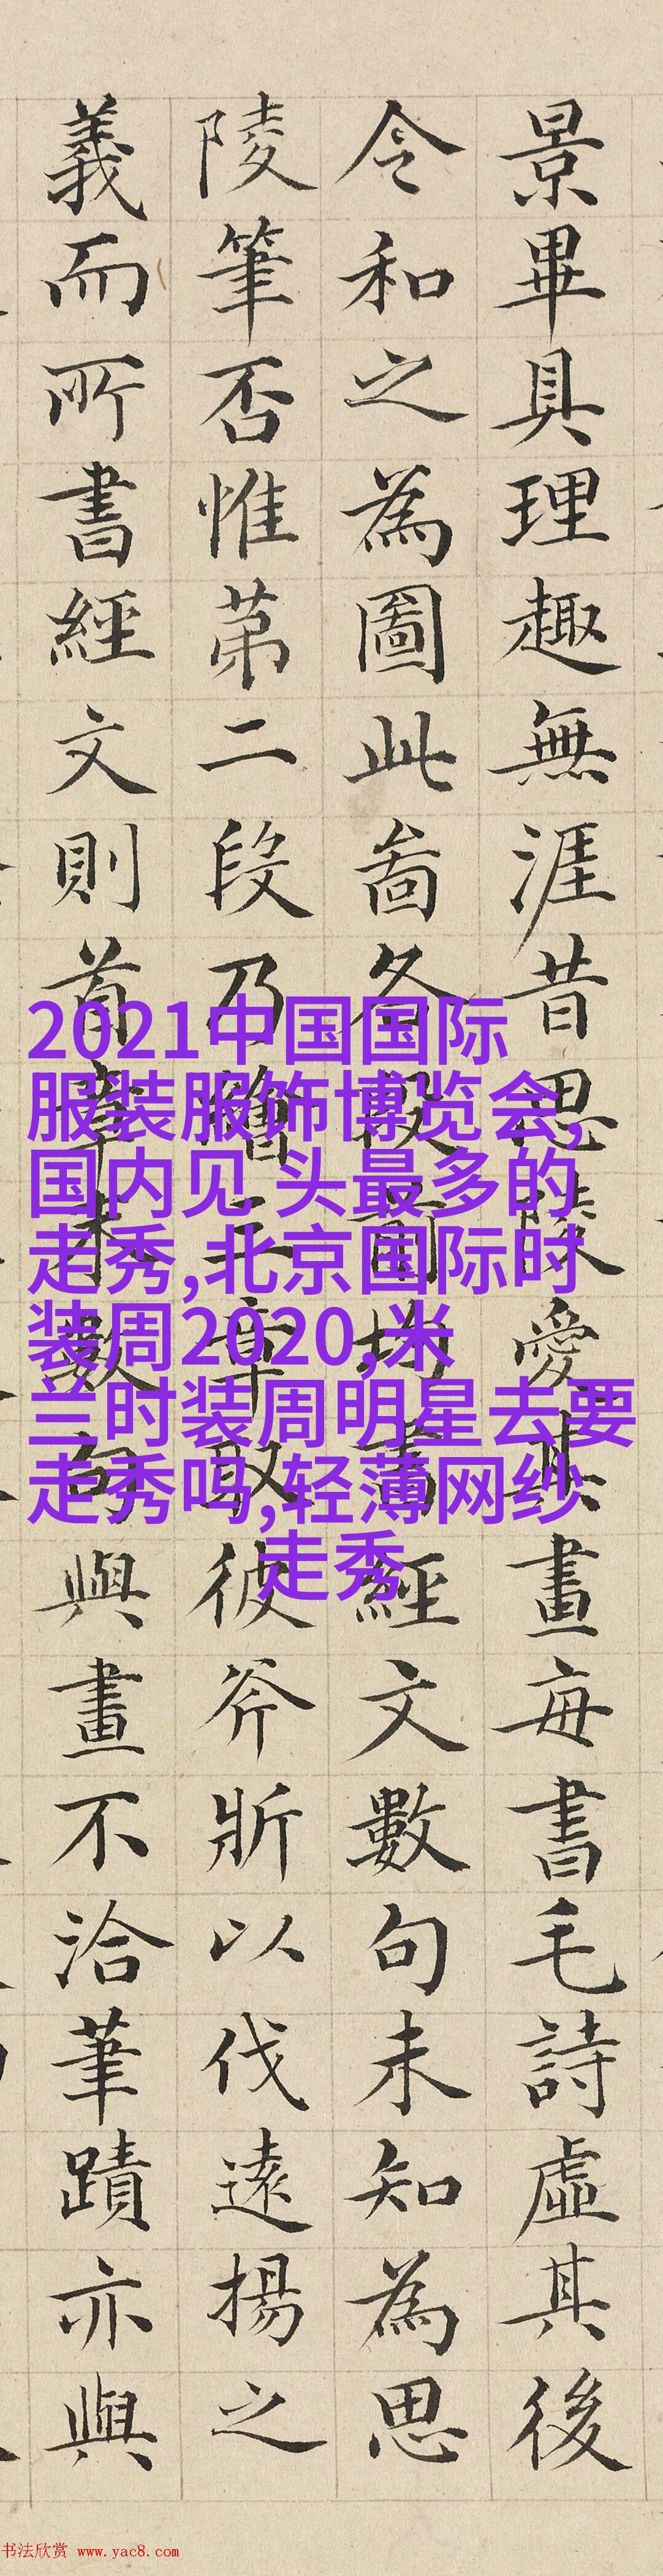 景畢具理趣無涯昔思陵愛其畫每書毛詩虛其後
令和之為圖此啚各段前均書經文數句未知為思
陵筆否惟苐二段乃繪三章取彼斧斨以伐遠揚之
義而所書經文則首章末數句與畫不洽筆蹟亦與
2021中国国际
服装服饰博览会,
国内见 头最多的
走秀,北京国际时
装周2020,米
兰时装周明星去要
走秀吗,轻薄网纱
走秀
书法欣赏 www.yac8.com